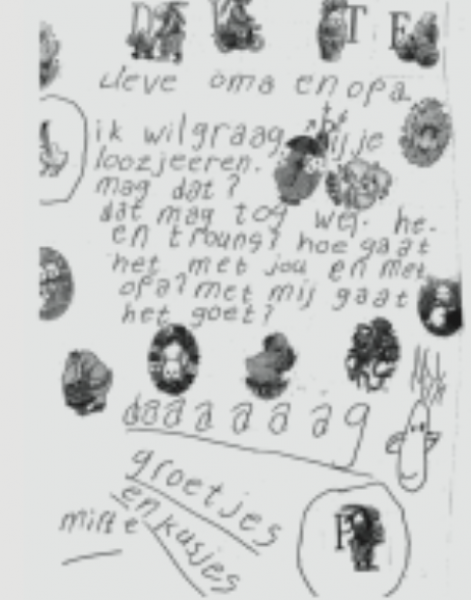 D I T E
Lieve oma en opa
ik wil graag bij je
loozjeeren.
mag dat?
dat mag tog wel. he.
en trouns? hoe gaat
het met jou en met
opa? met mij gaat
het goet?
daaaaaaag
groetjes
en kusjes
P